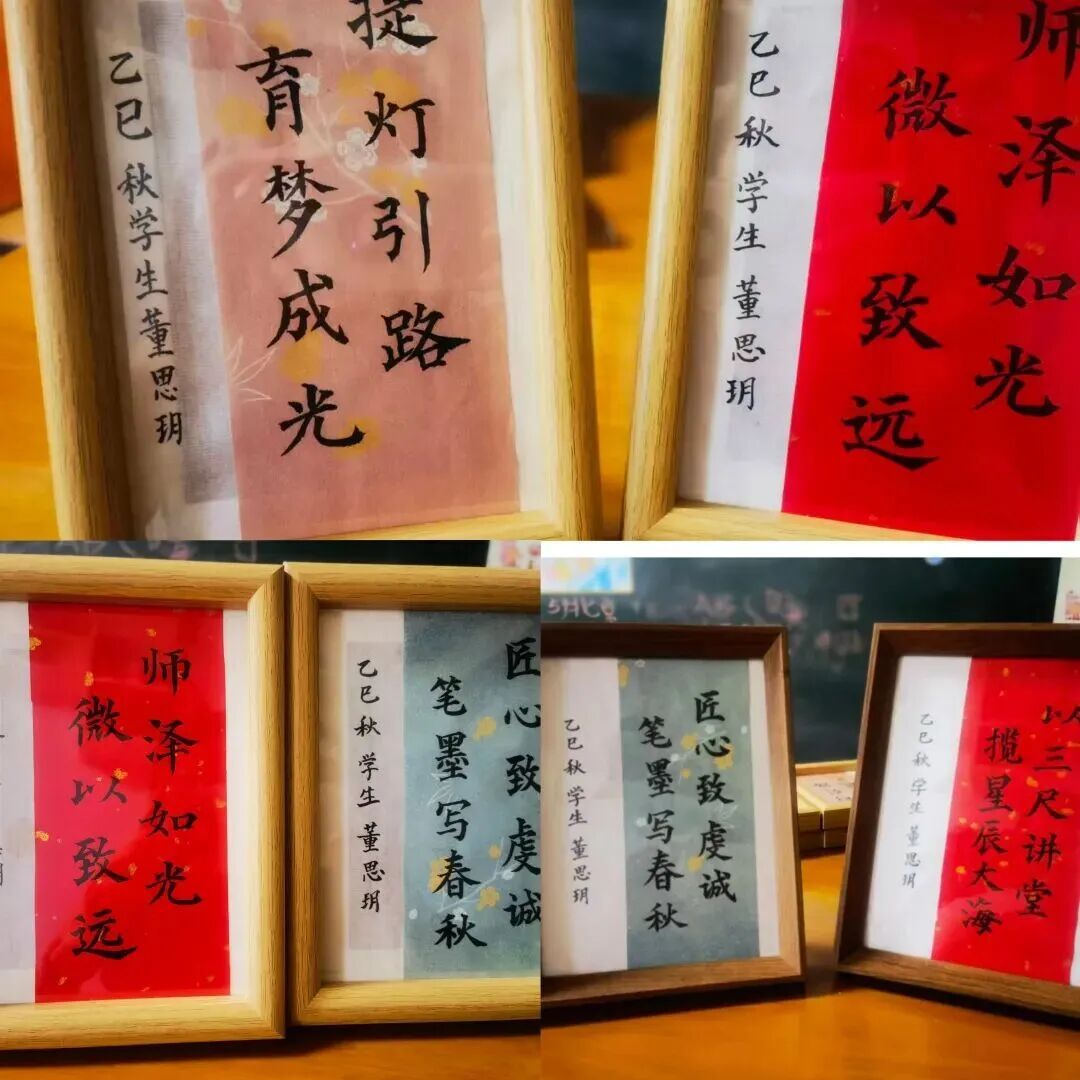 提灯引路
育梦成光
乙巳秋学生董思玥
师泽如光
微以致远
乙巳秋学生董思玥
师泽如光
微以致远
匠心致虔诚
笔墨写春秋
乙巳秋学生董思玥
匠心致虔诚
笔墨写春秋
乙巳秋学生董思玥
以三尺讲堂
揽星辰大海
乙巳秋学生董思玥